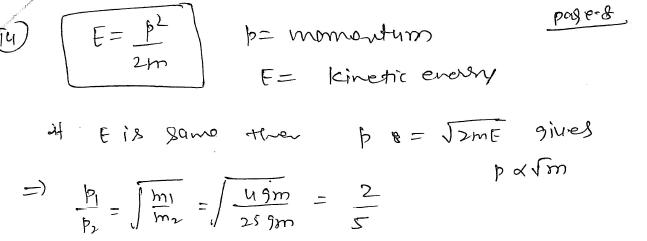 page-8
14) E = p²/2m p = momentum
E = kinetic energy
if E is same then p = √2mE gives
p ∝ √m
=> p₁/p₂ = √m₁/m₂ = √4gm/25gm = 2/5